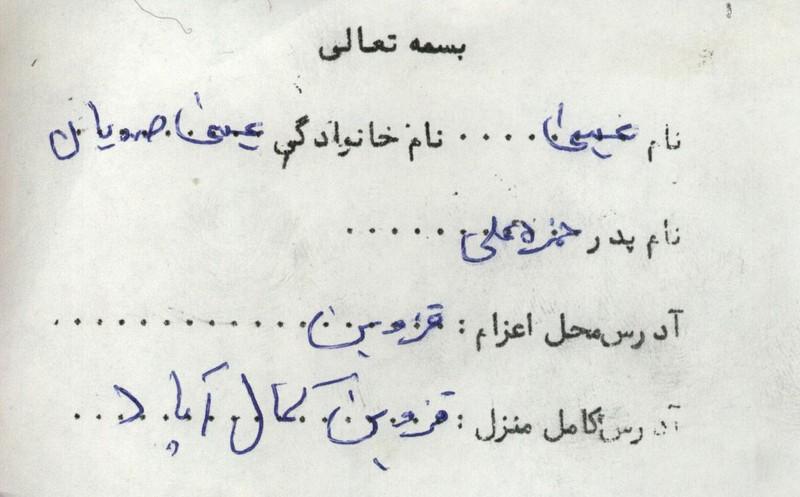 بسمه تعالی
نام عیسی .... نام خانوادگی عیسی صدریان
نام پدر حمزه علی .......
آدرس محل اعزام : قزوین .............
آدرس کامل منزل : قزوین کمال آباد ...